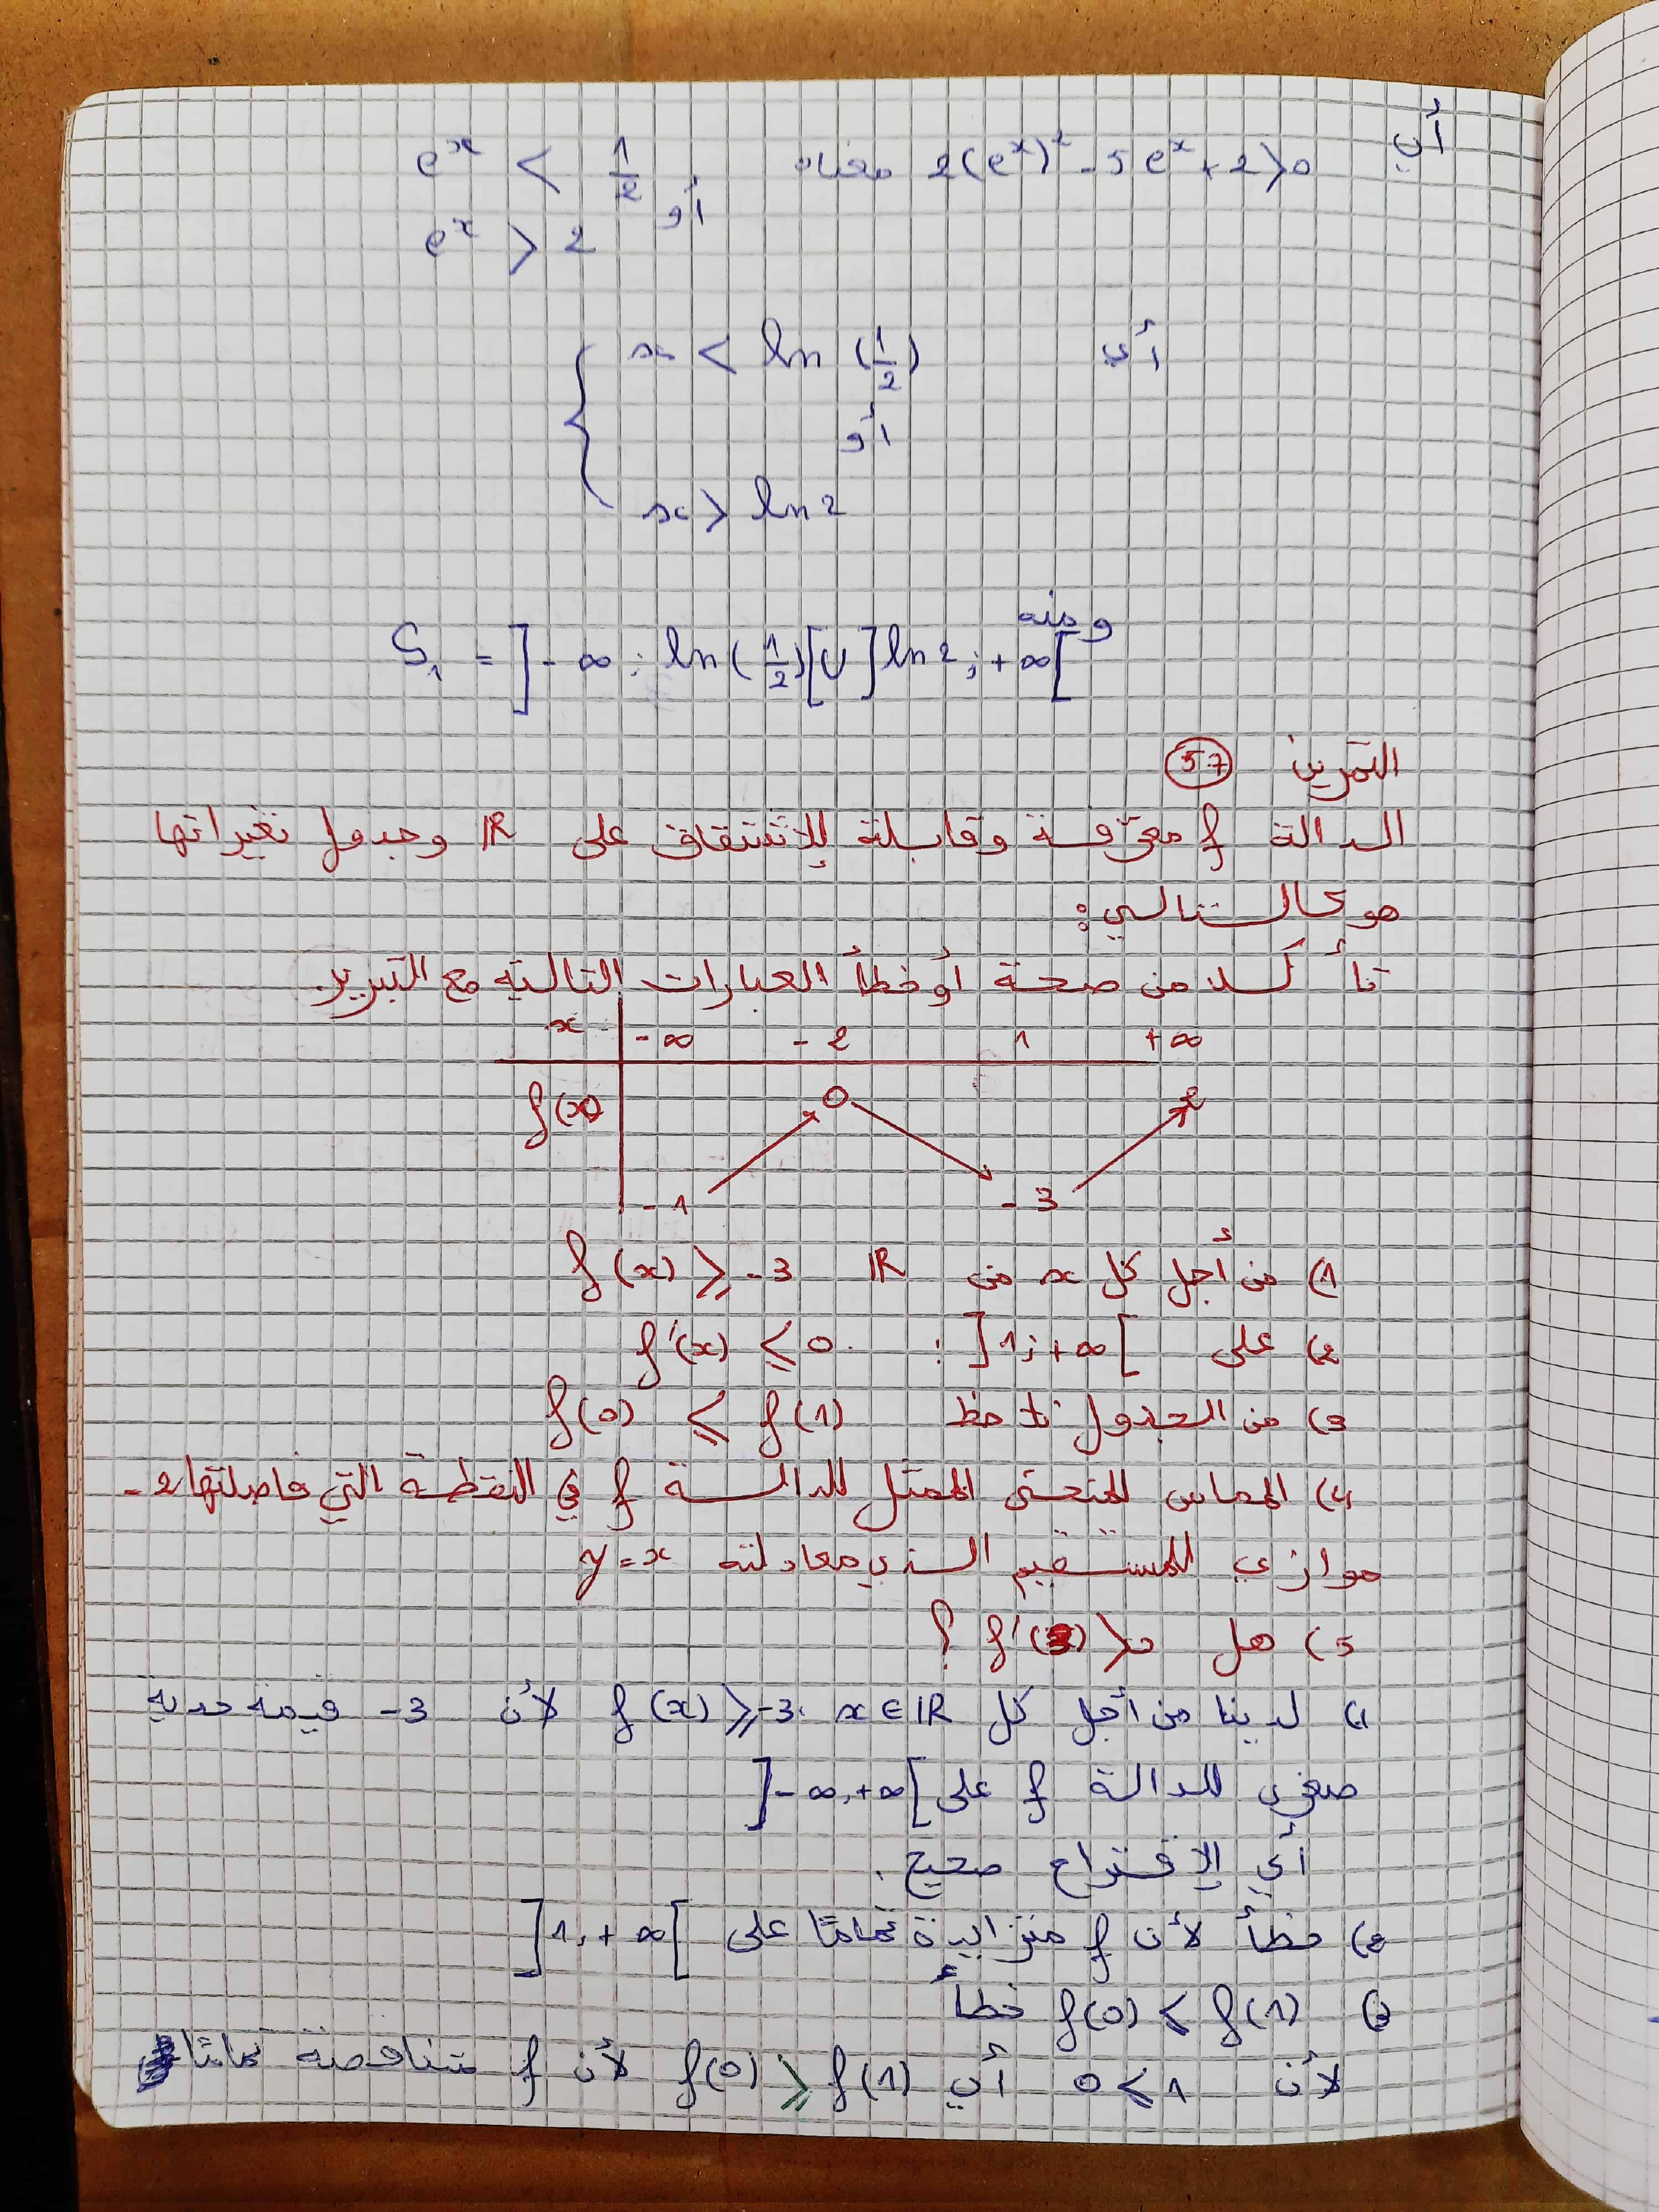 أي 2(eˣ)² - 5eˣ + 2 > 0 معناه eˣ < 1/2
أو
eˣ > 2
أي x < ln (1/2)
أو
x > ln 2
ومنه
S₁ = ]-∞; ln(1/2)[ ∪ ]ln 2; +∞[
التمرين 57
الدالة f معرّفة وقابلة للإشتقاق على IR وجدول تغيراتها
هو كالتالي:
تأكد من صحة أو خطأ العبارات التالية مع التبرير.
x -∞ -2 1 +∞
f(x) 0 2
-1 -3
1) من أجل كل x من IR f(x) ⩾ -3
2) على ]1; +∞[ : f'(x) ⩽ 0.
3) من الجدول نلاحظ f(0) ⩽ f(1)
4) المماس للمنحنى الممثل للدالة f في النقطة التي فاصلتها -2
موازي للمستقيم الذي معادلته y = x
5) هل f'(3) > 0 ؟
1) لدينا من أجل كل x ∈ IR f(x) ⩾ -3 لأن -3 قيمة حدية
صغرى للدالة f على ]-∞, +∞[
أي الإقتراح صحيح.
2) خطأ لأن f متزايدة تمامًا على ]1, +∞[
3) f(0) ⩽ f(1) خطأ
لأن 0 ⩽ 1 أي f(0) ⩾ f(1) لأن f متناقصة تمامًا